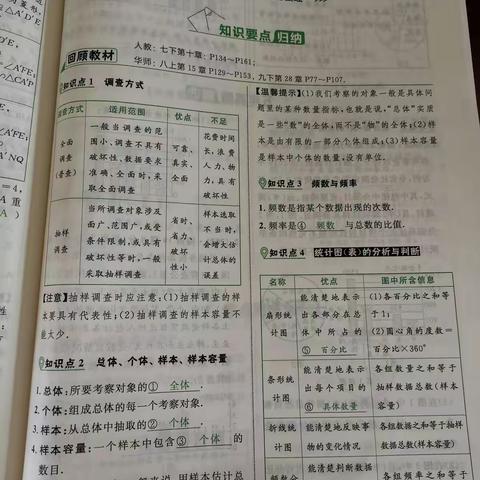 知识要点 归纳
回顾教材
人教：七下第十章：P134～P161；
华师：八上第 15 章 P129～P153，九下第 28 章 P77～P107.
知识点 1 调查方式
调查方式 适用范围 优点 不足
全面
调查
(普查)
一般当调查的范
围小、调查不具有
破坏性、数据要求
准确、全面时，采
取全面调查
可靠、
真实、
全面
花费时间
长，浪费
人力、物
力，具有
破坏性
抽样
调查
当所调查对象涉及
面广、范围广，或受
条件限制，或具有
破坏性等时，一般
采取抽样调查
省时、
省力、
破坏
性小
样本选取
不当时，
会增大估
计总体的
误差
【注意】抽样调查时应注意：(1)抽样调查的样
本要具有代表性；(2)抽样调查的样本容量不
能太少．
知识点 2 总体、个体、样本、样本容量
1. 总体：所要考察对象的① 全体 ．
2. 个体：组成总体的每一个考察对象．
3. 样本：从总体中抽取的② 个体 ．
4. 样本容量：一个样本中包含③ 个体 的
数目．
用样本估计总
【温馨提示】(1)我们考察的对象一般是具体问
题里的某种数量指标，也就是说，“总体”实质
是一些“数”的全体，而不是“物”的全体；(2)样
本是由有限的一部分个体组成；(3)样本容量
是样本中个体的数量，没有单位．
知识点 3 频数与频率
1. 频数是指某个数据出现的次数．
2. 频率是④ 频数 与总数的比值．
知识点 4 统计图(表)的分析与判断
名称 优点 图中所含信息
扇形统
计图
能清楚地表示
出各部分在总
体中所占的
⑤ 百分比
(1)各百分比之和等
于1；
(2)圆心角的度数=
百分比×360°
条形统
计图
能清楚地表示
出每个项目的
⑥ 具体数量
各组数量之和等于
抽样数据总数(样本
容量)
折线统
计图
能清楚地反映事
物的变化情况
各组数量之和等于抽样
数据总数(样本容量)
能清楚判断数据
各组频率之和等于